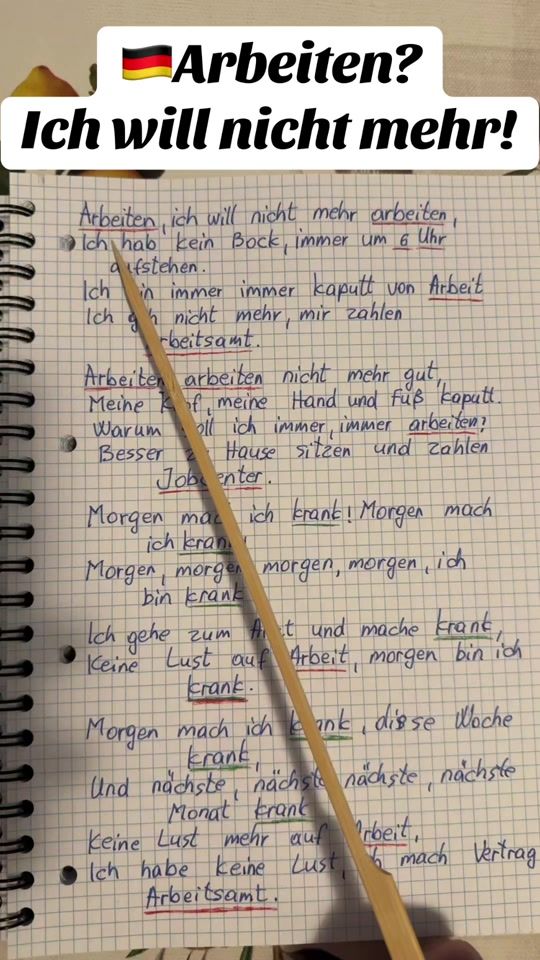 🇩🇪Arbeiten?
Ich will nicht mehr!
Arbeiten, ich will nicht mehr arbeiten,
Ich hab kein Bock, immer um 6 Uhr
aufstehen.
Ich bin immer immer kaputt von Arbeit
Ich geh nicht mehr, mir zahlen
Arbeitsamt.
Arbeiten, arbeiten nicht mehr gut,
Meine Kopf, meine Hand und Fuß kaputt.
Warum soll ich immer, immer arbeiten?
Besser zu Hause sitzen und zahlen
Jobcenter.
Morgen mach ich krank! Morgen mach
ich krank!
Morgen, morgen, morgen, morgen, ich
bin krank
Ich gehe zum Arzt und mache krank,
Keine Lust auf Arbeit, morgen bin ich
krank.
Morgen mach ich krank, diese Woche
krank,
Und nächste, nächste, nächste, nächste
Monat krank
Keine Lust mehr auf Arbeit,
Ich habe keine Lust, ich mach Vertrag
Arbeitsamt.